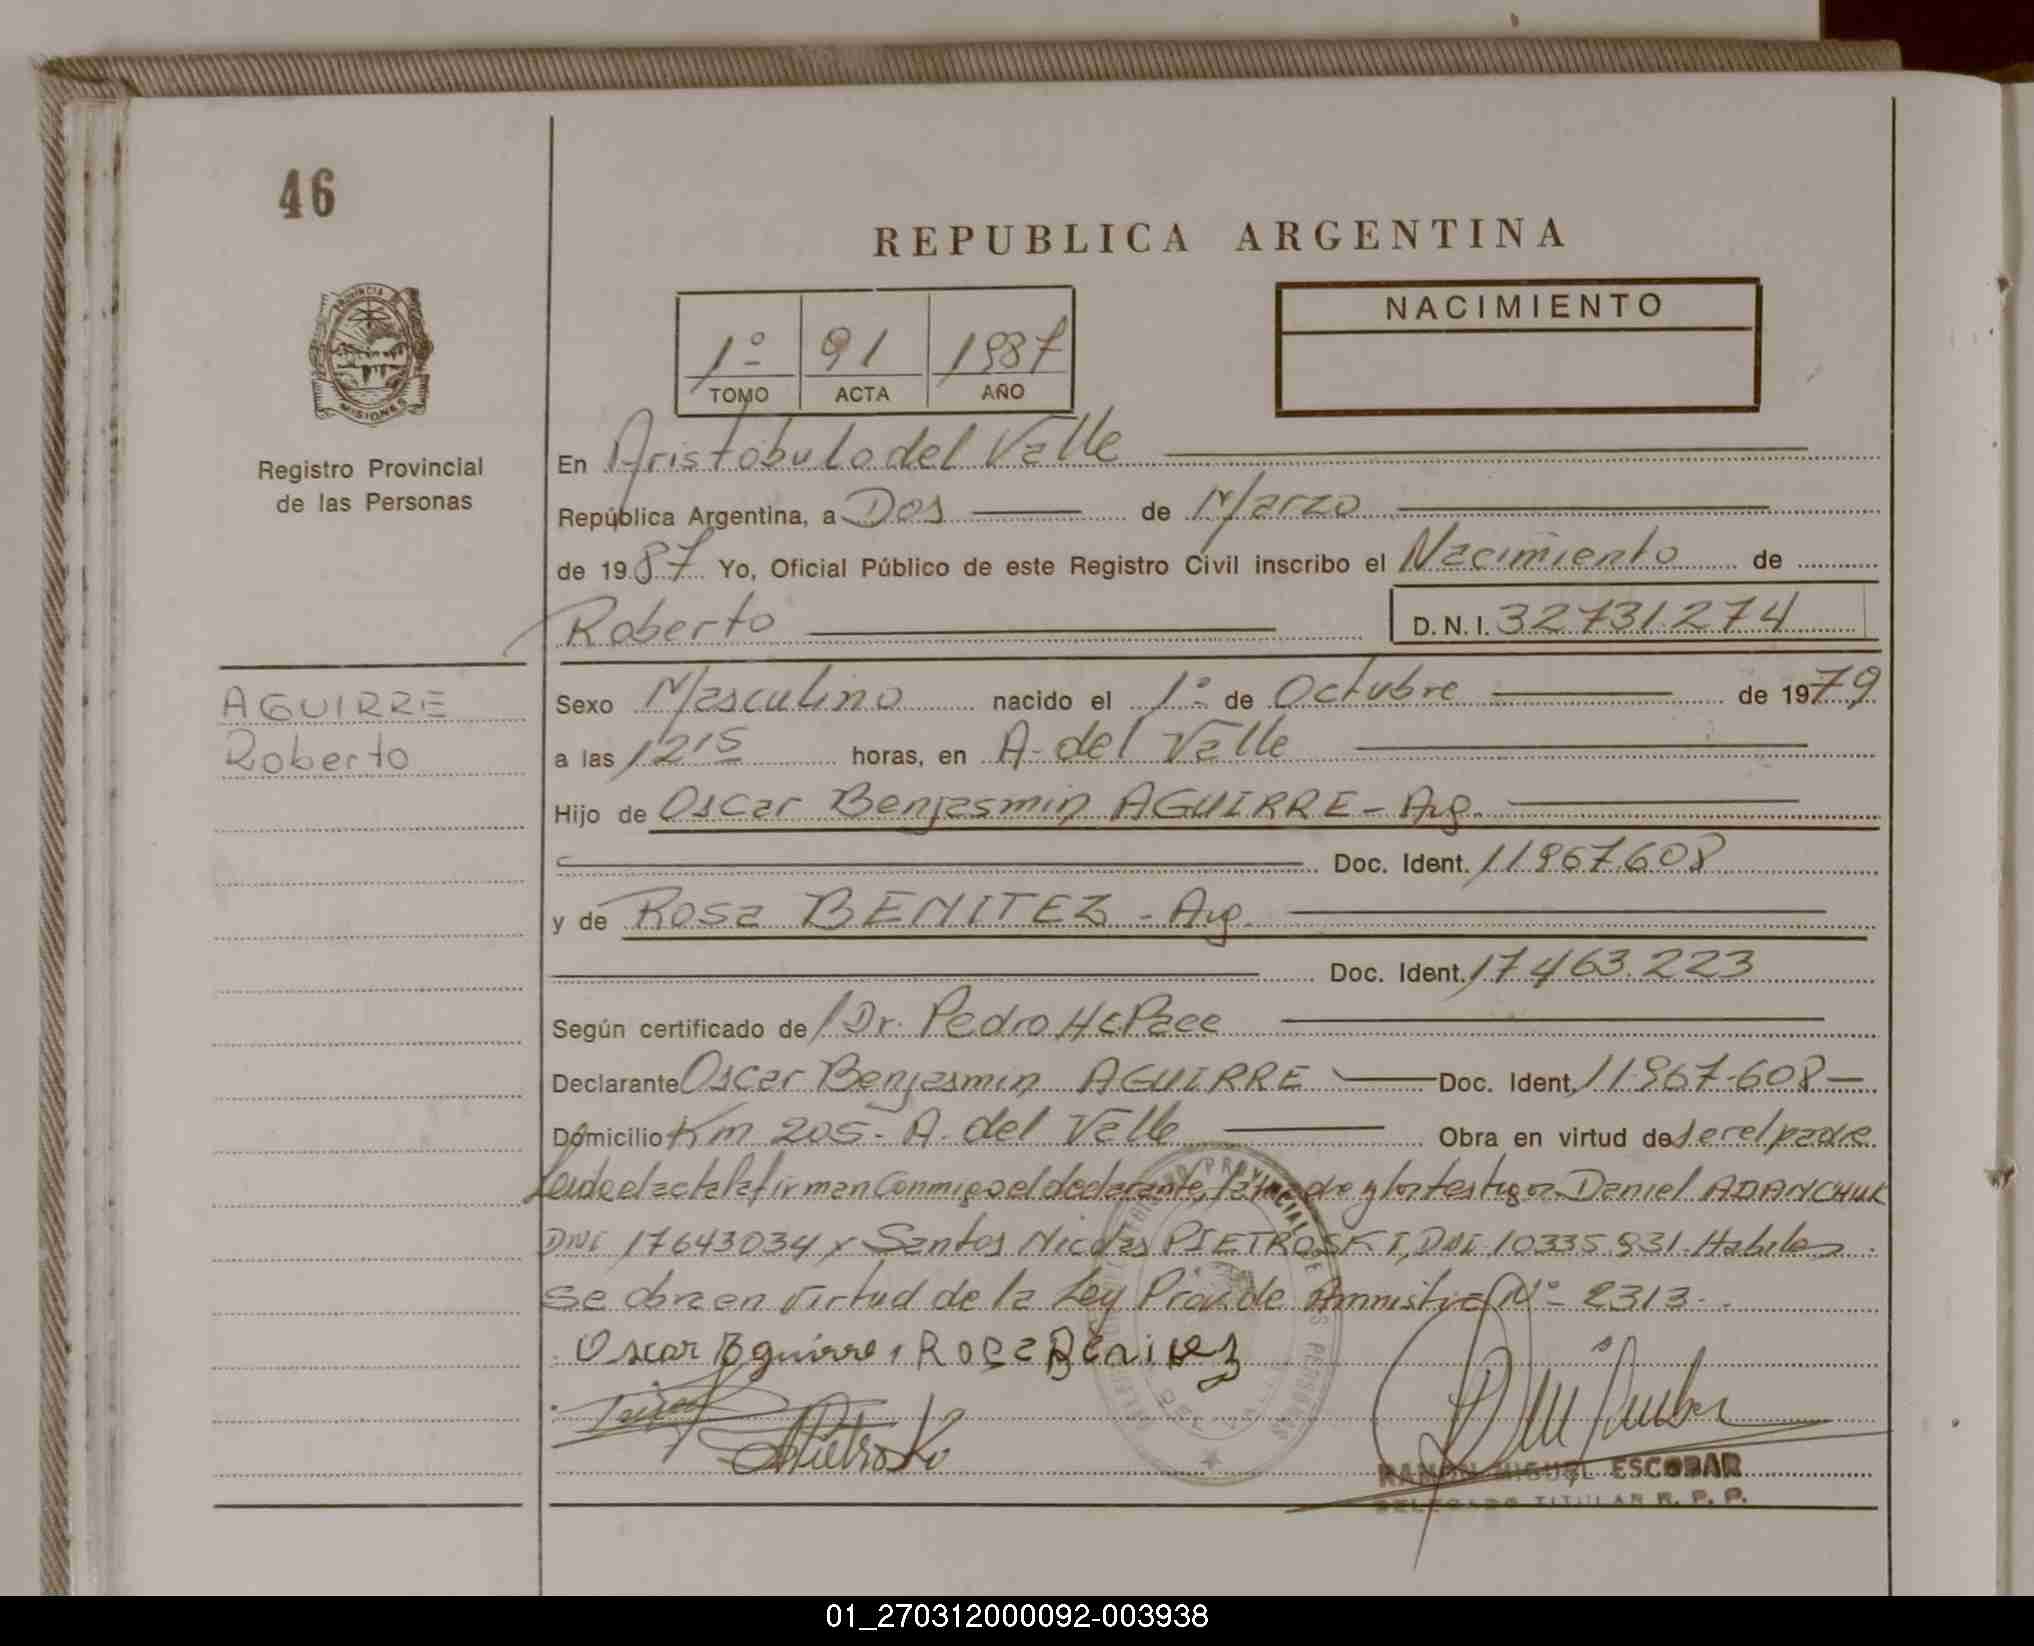 46
REPUBLICA ARGENTINA
PROVINCIA DE
MISIONES
Registro Provincial
de las Personas
1º 91 1987
TOMO ACTA AÑO
NACIMIENTO
En Aristobulo del Valle
República Argentina, a Dos de Marzo
de 1987 Yo, Oficial Público de este Registro Civil inscribo el Nacimiento de
Roberto D.N.I. 32731274
AGUIRRE
Roberto
Sexo Masculino nacido el 1º de Octubre de 1979
a las 12 15 horas, en A. del Valle
Hijo de Oscar Benjasmin AGUIRRE - Arg.
Doc. Ident. 11967.608
y de Rosa BENITEZ - Arg.
Doc. Ident. 17463.223
Según certificado de Dr. Pedro H.
Declarante Oscar Benjasmin AGUIRRE Doc. Ident. 11967.608
Domicilio Km 205 - A. del Valle Obra en virtud de ser el padre
Leida el acta la firman Conmigo el declarante, la madre y los testigos Daniel ADANCHUK
DNI 17643034 y Santos Nicolas PIETROSKI, DNI 10335.931. Habiles
se obra en virtud de la Ley Prov. de Amnistia Nº 2313.
Oscar Aguirre, Rosa Benitez
RAMON MIGUEL ESCOBAR
DELEGADO TITULAR R. P. P.
01_270312000092-003938